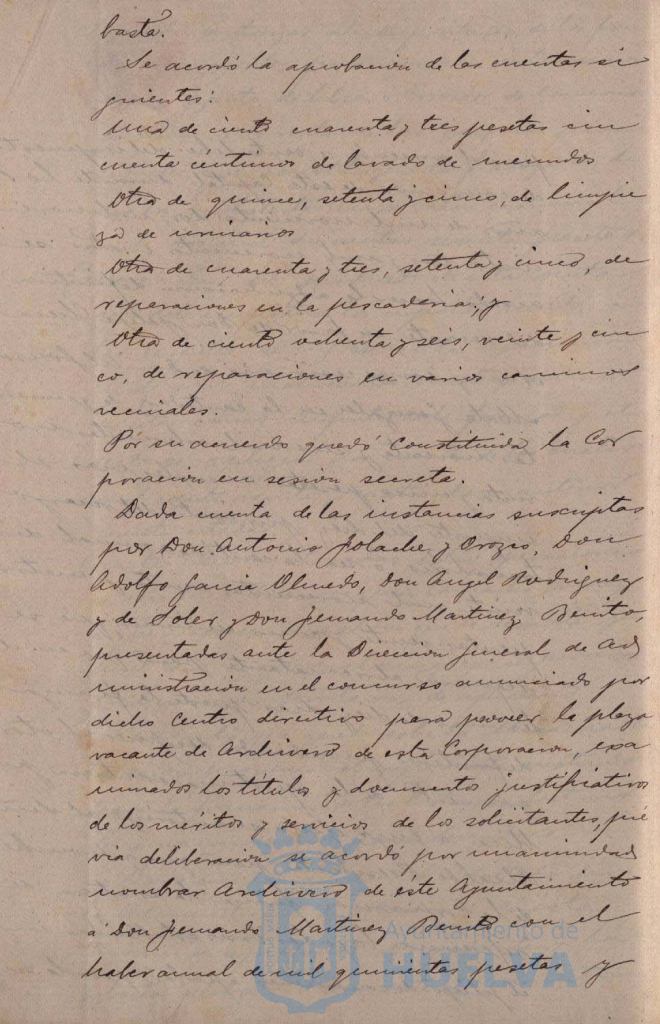 basta.
Se acordó la aprobacion de las cuentas si
guientes:
Una de ciento cuarenta y tres pesetas cin
cuenta céntimos de lavado de menudos
Otra de quince, setenta y cinco, de limpie
za de urinarios
Otra de cuarenta y tres, setenta y cinco, de
reparaciones en la pescaderia; y
Otra de ciento ochenta y seis, veinte y cin
co, de reparaciones en varios caminos
vecinales.
Por su acuerdo quedó constituida la Cor
poracion en sesion secreta.
Dada cuenta de las instancias suscriptas
por Don Antonio Jolache y Orozco, Don
Adolfo Garcia Olmedo, Don Angel Rodriguez
y de Soler y Don Fernando Martinez Benito,
presentadas ante la Direccion General de Ad
ministración en el concurso anunciado por
dicho Centro directivo para proveer la plaza
vacante de Archivero de esta Corporacion, exa
minados los títulos y documentos justificativos
de los méritos y servicios de los solicitantes, pré
via deliberacion se acordó por unanimidad
nombrar Archivero de éste Ayuntamiento
á Don Fernando Martinez Benito con el
haber annal de mil quinientas pesetas y
Ayuntamiento de
HUELVA